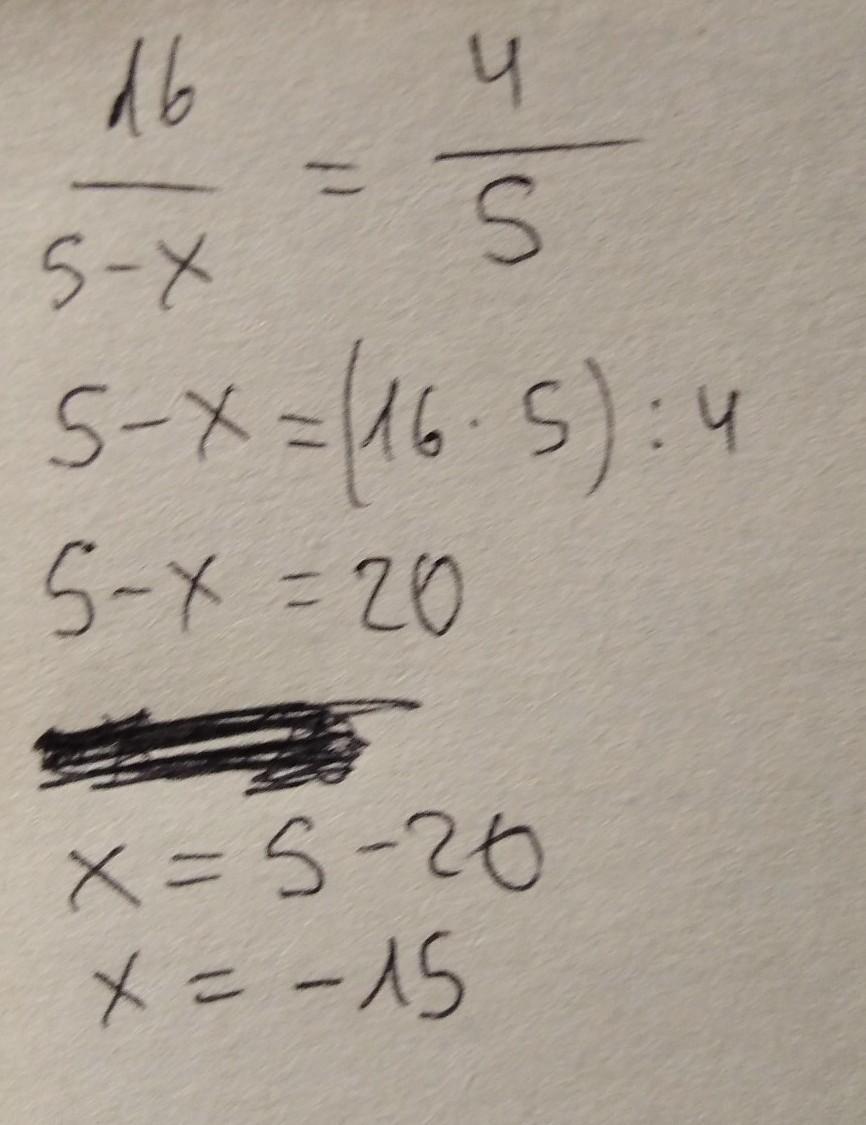 16/5-x = 4/5
5-x = (16 · 5) : 4
5-x = 20
x = 5-20
x = -15